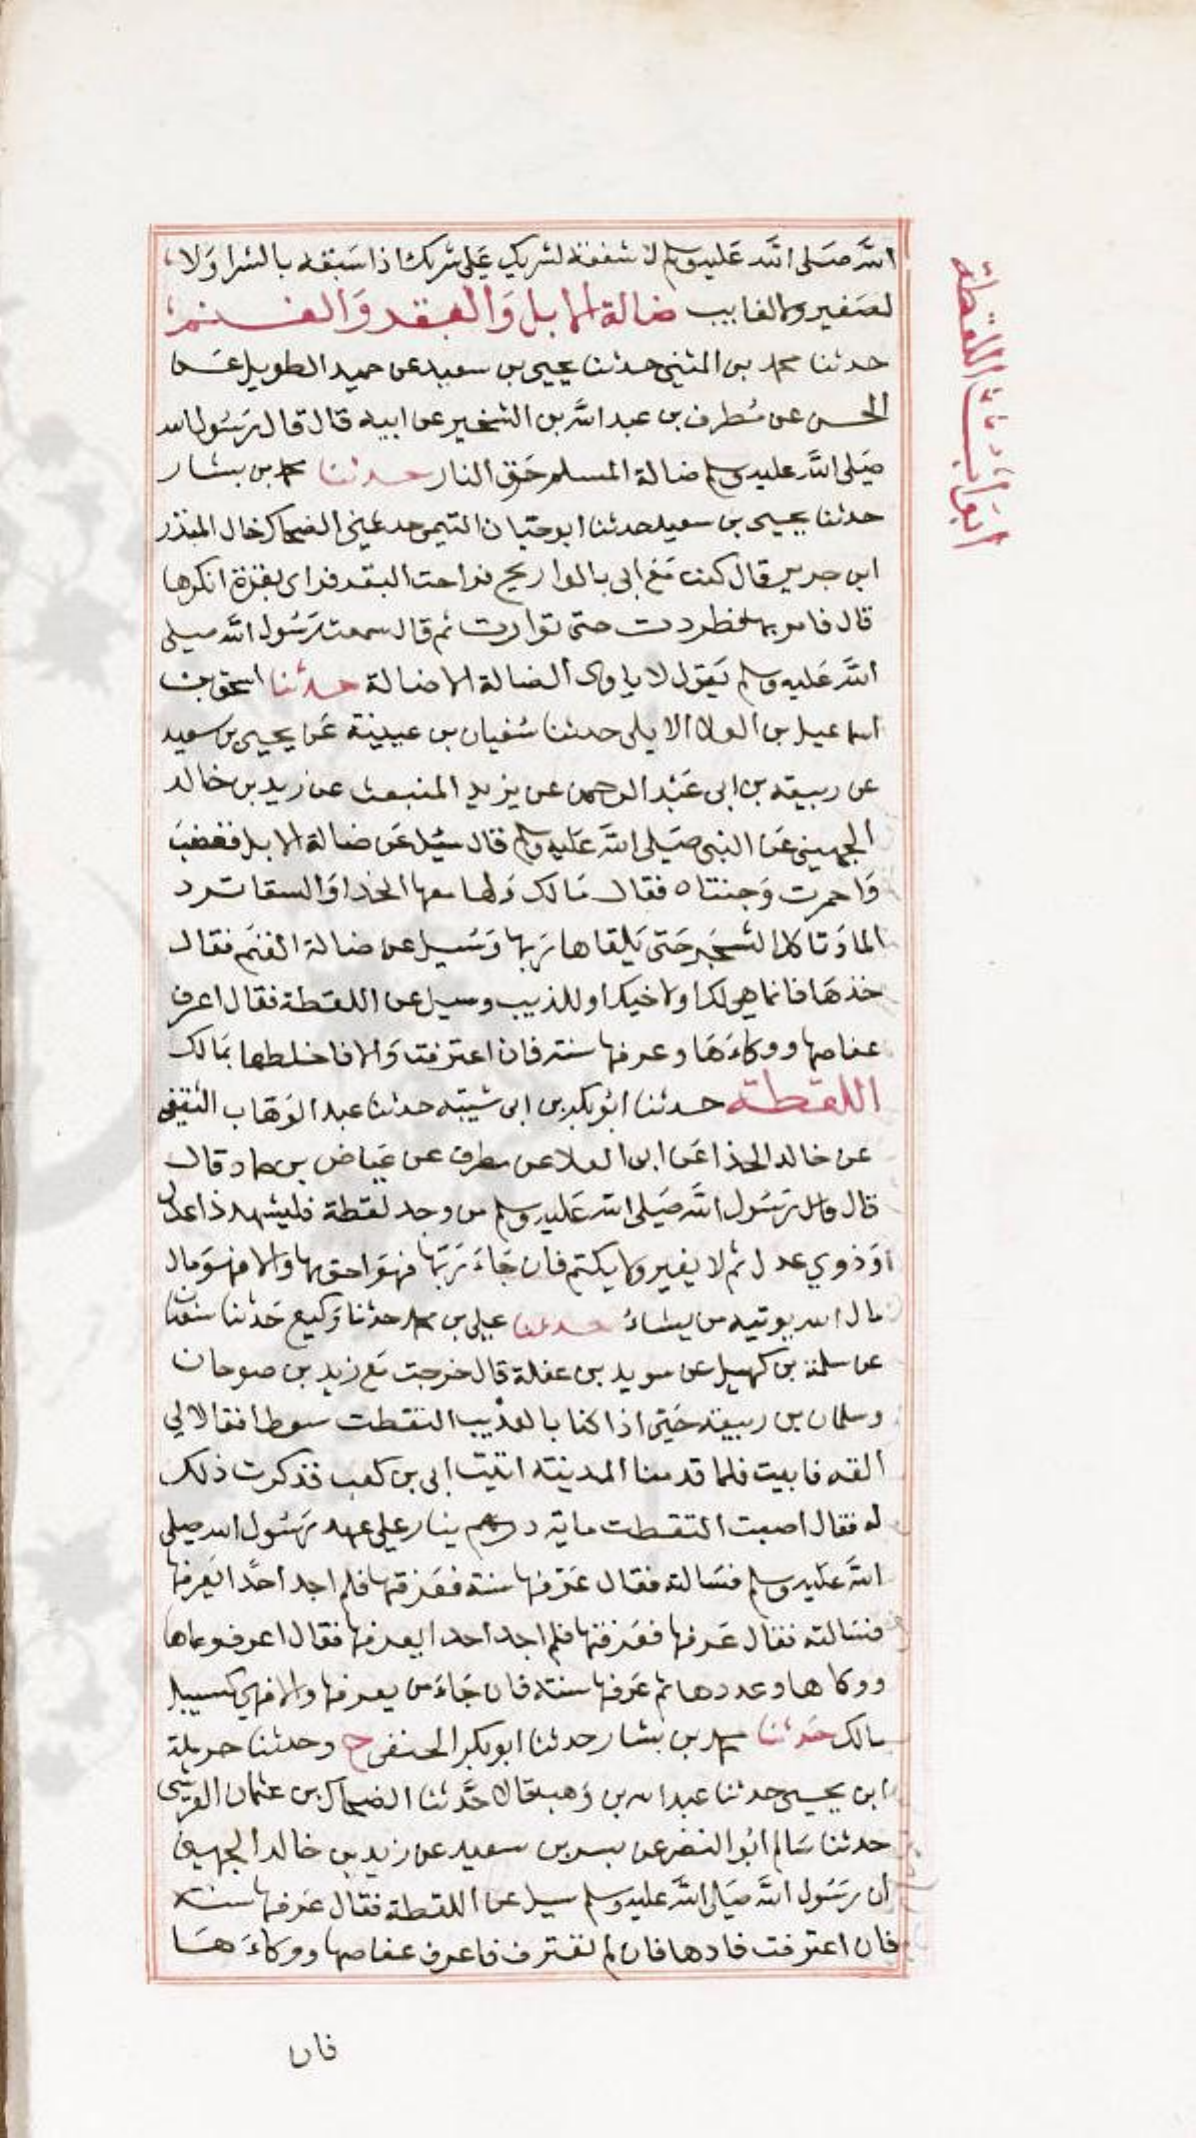 ابواب اللقطة
الله صَلى الله عَليه وسلم لا شفعة لشريك عَلى شريك اذا سَبقه بالشرا وَلا
لصَغير ولا لغايب ضالة الابل وَالبقر وَالغنم
حدثنا محمد بن المثني حدثنا يحيى بن سعيد عن حميد الطويل عَن
الحسن عن مُطرف بن عبد الله بن الشخير عن ابيه قال قال رَسُول الله
صَلى الله عليه وسلم ضالة المسلم حَرق النار حدثنا محمد بن بشار
حدثنا يحيى بن سعيد حدثنا ابو حيان التيمي حدثني الضحاك خال المنذر
ابن جرير قال كنت مَع ابي بالبوازيج فراحت البقر فراى بقرة انكرها
قال فامر بها فطردت حتى توارت ثم قال سمعت رَسُول الله صلى
الله عَليه وسلم يَقول لا ياوى الضالة الا ضالة حدثنا اسحق بن
اسماعيل بن العلا الايلي حدثنا سُفيان بن عيينة عَن يحيى بن سعيد
عن ربيعة بن ابى عَبْد الرحمن عن يزيد المنبعث عن زيد بن خالد
الجهني عَن النبي صَلى الله عَليه وسلم قال سُئل عَن ضالة الابل فغضبَ
وَاحمرت وَجنتاه فقال مَالك وَلها معها الحذا وَالسقا ترد
الما وَتاكل الشجَر حَتى يَلقاها رَبها وَسُيل عن ضالة الغنَم فقال
خذهَا فانما هي لك او لاخيك او للذيب وسيل عن اللقطة فقال اعرف
عفاصها ووكاءَهَا وعرفها سنة فان اعترفت وَالا فاخلطها بمَالك
اللقطة حدثنا ابُو بكر بن ابى شيبة حدثنا عبد الوَهاب الثقفي
عن خالد الحذا عَن ابى العلا عن مطرف عن عَياض بن حماد قال
قال قال رَسُول الله صَلى الله عَليه وسلم من وجد لقطة فليشهد ذا عدل
اوَ ذوي عدل ثم لا يغير ولا يكتم فان جَاءَ رَبّهَا فهوَ احق بها والا فهوَ مال
مال الله يوتيه من يشاءُ حدثنا علي بن محمد حدثنا وَكيع حَدثنا سفيان
عن سلمة بن كهيل عن سويد بن غفلة قال خرجت مَع زيد بن صوحان
وسلمان بن ربيعة حَتى اذا كنا بالعذيب التقطت سَوطا فقالا لي
القه فابيت فلما قدمنا المدينة اتيت ابي بن كعب فذكرت ذلك
له فقال اصبت التقطت ماية درهم ينار على عهد رَسُول الله صلى
الله عَليه وسلم فسَالته فقال عَرّفها سنة فعَرفتها فلم اجد احدًا يَعرفها
فسَالته فقال عَرفها فعَرفتها فلم اجد احدا يعرفها فقال اعرف وعاها
ووكاها وعددها ثم عَرفها سنة فان جَاءَ من يعرفها والا فهي كسبيل
مالك حَدثنا محمد بن بشار حدثنا ابو بكر الحنفي ح وحدثنا حرملة
ابن يحيى حدثنا عبد الله بن وَهب قالا حَدَّثنا الضحاك بن عثمان القرشي
حدثنا سَالم ابُو النضر عن بسر بن سعيد عن زيد بن خالد الجهني
ان رَسُول الله صَلى الله عليه وسلم سيل عن اللقطة فقال عَرفها سنة
فان اعترفت فادها فان لم تعترف فاعرف عفاصها ووكاءَهَا
فان